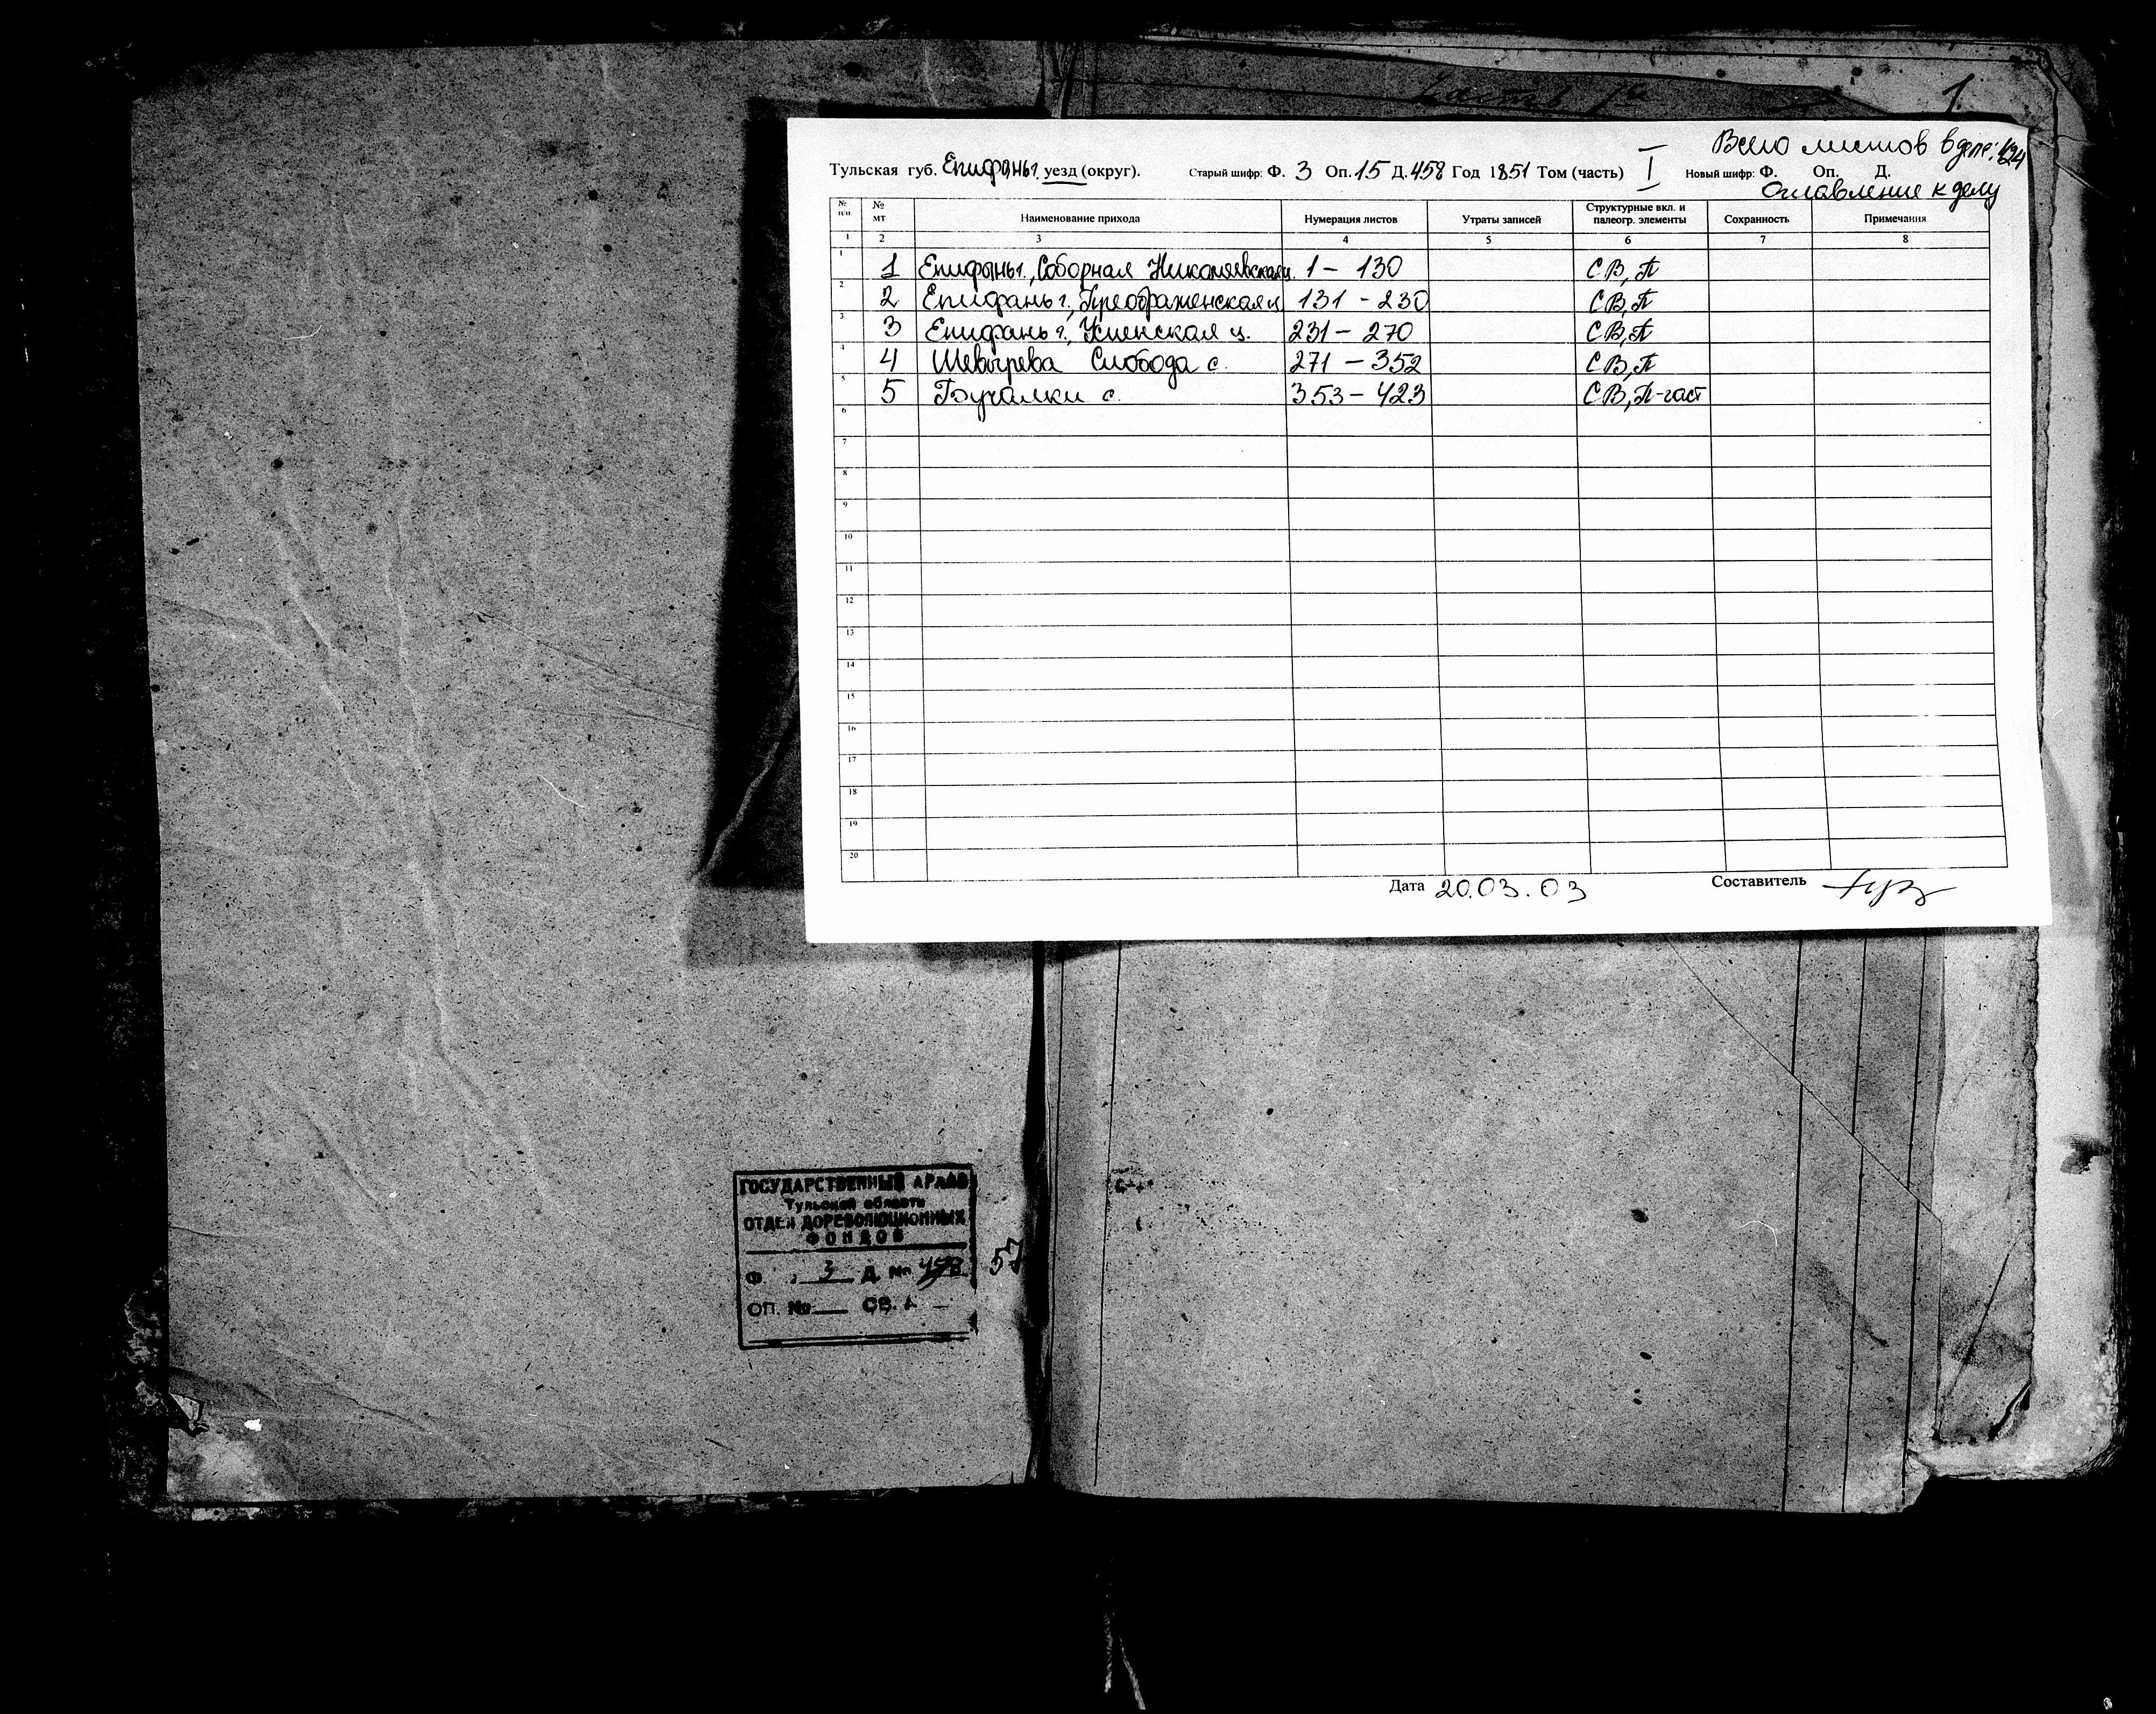 Часть 1я
1
Всего листов в деле: 424
Тульская губ. Епифань г. уезд (округ). Старый шифр: Ф. 3 Оп. 15 Д. 458 Год 1851 Том (часть) I Новый шифр: Ф. Оп. Д.
Оглавление к делу
№ п/п № мт Наименование прихода Нумерация листов Утраты записей Структурные вкл. и палеогр. элементы Сохранность Примечания
1 2 3 4 5 6 7 8
1 1 Епифань г., Соборная Николаевская ц. 1 - 130 СВ, П
2 2 Епифань г., Преображенская ц. 131 - 230 СВ, П
3 3 Епифань г., Успенская ц. 231 - 270 СВ, П
4 4 Шевырева Слобода с. 271 - 352 СВ, П
5 5 Бучалки с. 353 - 423 СВ, П-част
6
7
8
9
10
11
12
13
14
15
16
17
18
19
20
Дата 20.03.03 Составитель
ГОСУДАРСТВЕННЫЙ АРХИВ
Тульской области
ОТДЕЛ ДОРЕВОЛЮЦИОННЫХ
ФОНДОВ
Ф. 3 Д. № 458 57
ОП. № СВ.